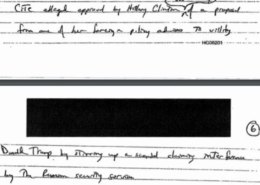 CITE alleged approval by Hillary Clinton of a proposal
from one of her foreign policy advisors to vilify
Donald Trump by stirring up a scandal claiming interference
by the Russian security services